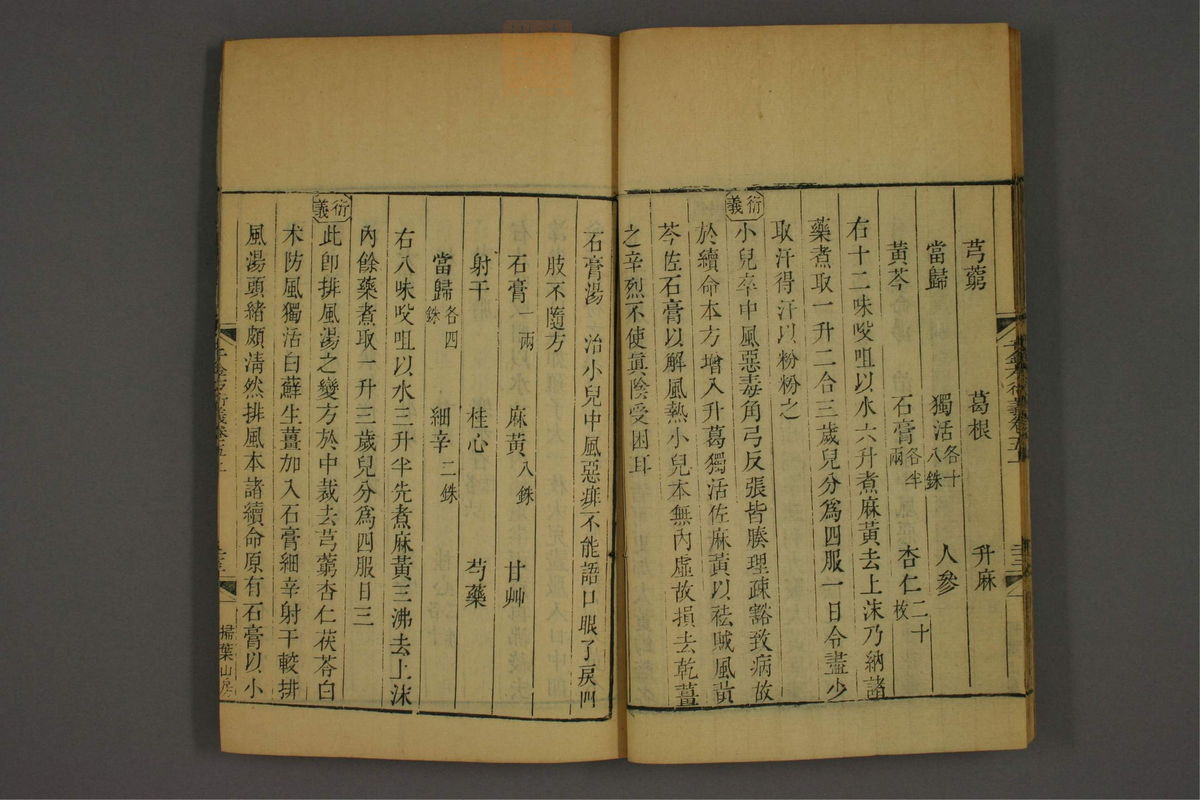 芎藭 葛根 升麻
當歸 獨活各十八銖 人參
黃芩 石膏各半兩 杏仁二十枚
右十二味㕮咀以水六升煮麻黃去上沫乃納諸
藥煮取一升二合三歲兒分爲四服一日令盡少
取汗得汗以粉粉之
衍義
小兒卒中風惡毒角弓反張皆腠理疎豁致病故
於續命本方增入升葛獨活佐麻黃以祛賊風黃
芩佐石膏以解風熱小兒本無內虛故損去乾薑
之辛烈不使眞陰受困耳
石膏湯 治小兒中風惡痱不能語口眼了戾四
肢不隨方
石膏一兩 麻黃八銖 甘艸
射干 桂心 芍藥
當歸各四銖 細辛二銖
右八味㕮咀以水三升半先煮麻黃三沸去上沫
內餘藥煮取一升三歲兒分爲四服日三
衍義
此卽排風湯之變方於中裁去芎藭杏仁茯苓白
朮防風獨活白蘇生薑加入石膏細辛射干較排
風湯頭緒頗淸然排風本諸續命原有石膏以小
千金方衍義卷五上
掃葉山房